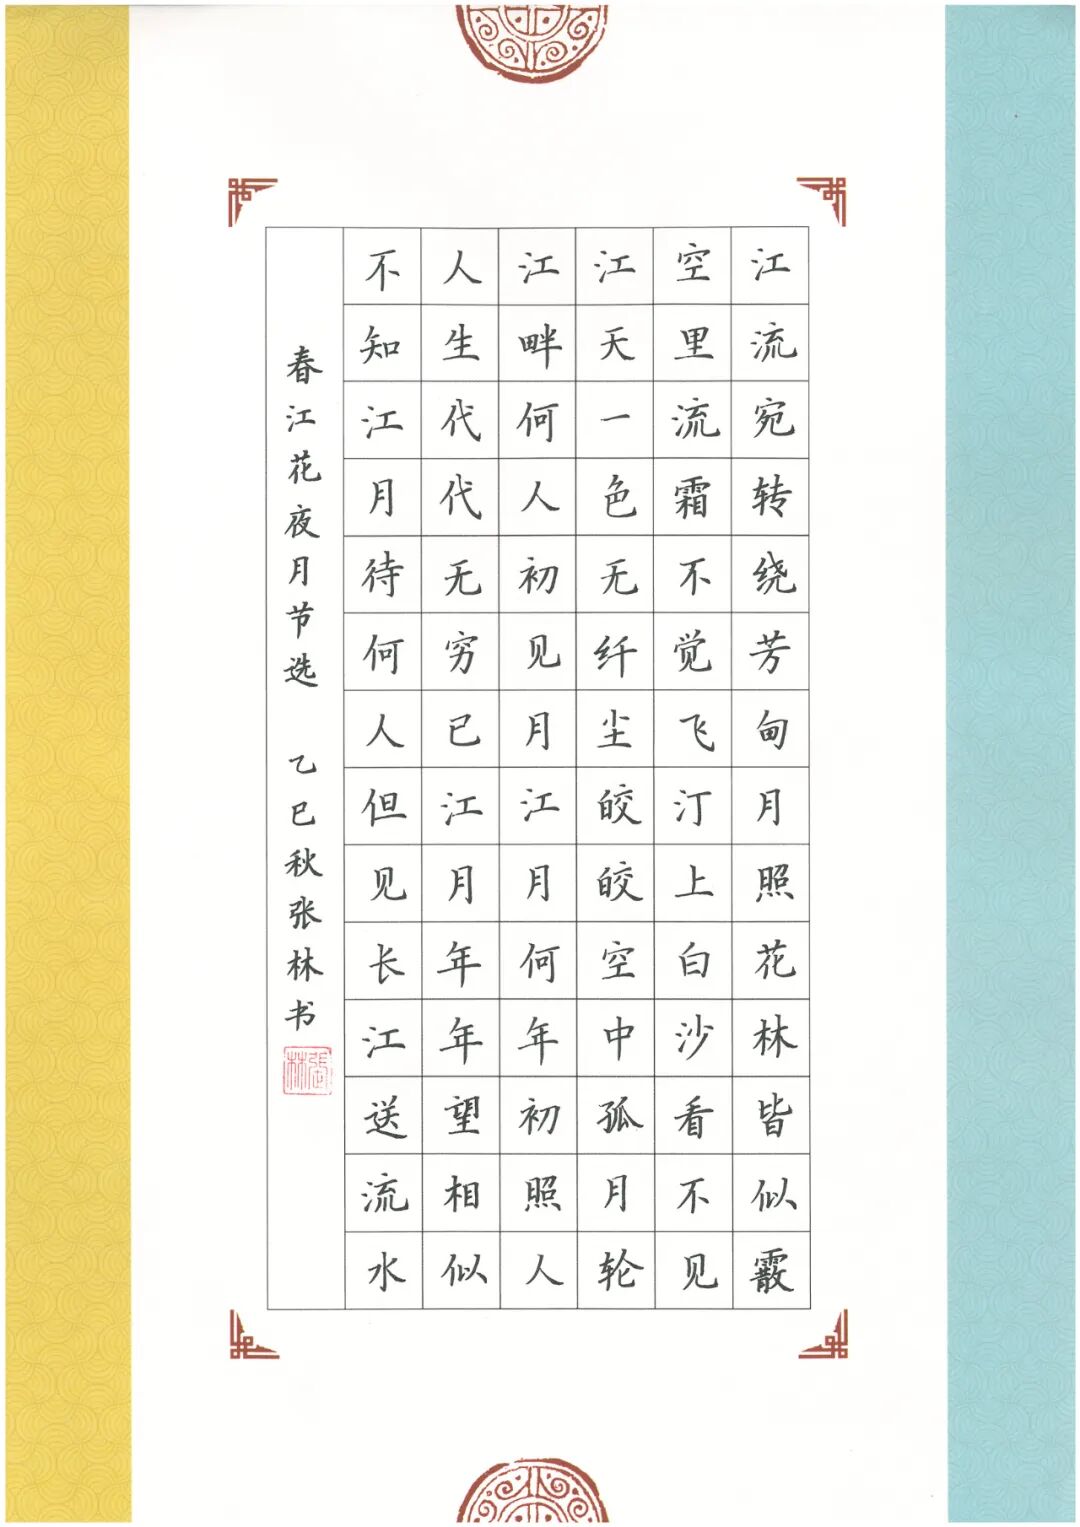 江流宛转绕芳甸月照花林皆似霰
空里流霜不觉飞汀上白沙看不见
江天一色无纤尘皎皎空中孤月轮
江畔何人初见月江月何年初照人
人生代代无穷已江月年年望相似
不知江月待何人但见长江送流水
春江花夜月节选 乙巳秋张林书
張林